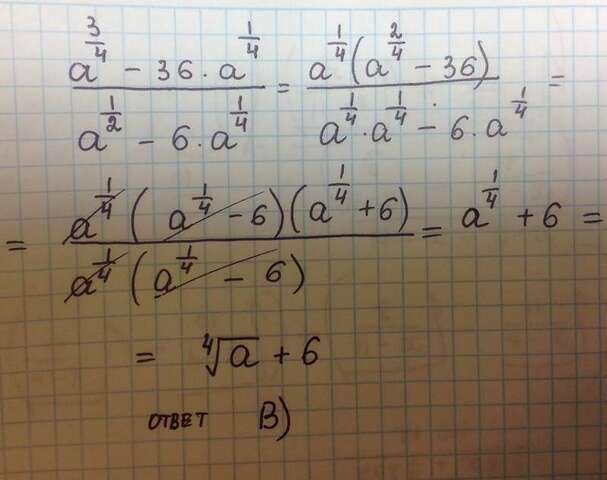 (a^(3/4) − 36 · a^(1/4)) / (a^(1/2) − 6 · a^(1/4)) = (a^(1/4) (a^(2/4) − 36)) / (a^(1/4) · a^(1/4) − 6 · a^(1/4)) =
= (a^(1/4) (a^(1/4) − 6)(a^(1/4) + 6)) / (a^(1/4) (a^(1/4) − 6)) = a^(1/4) + 6 =
= ∜a + 6
ответ В)